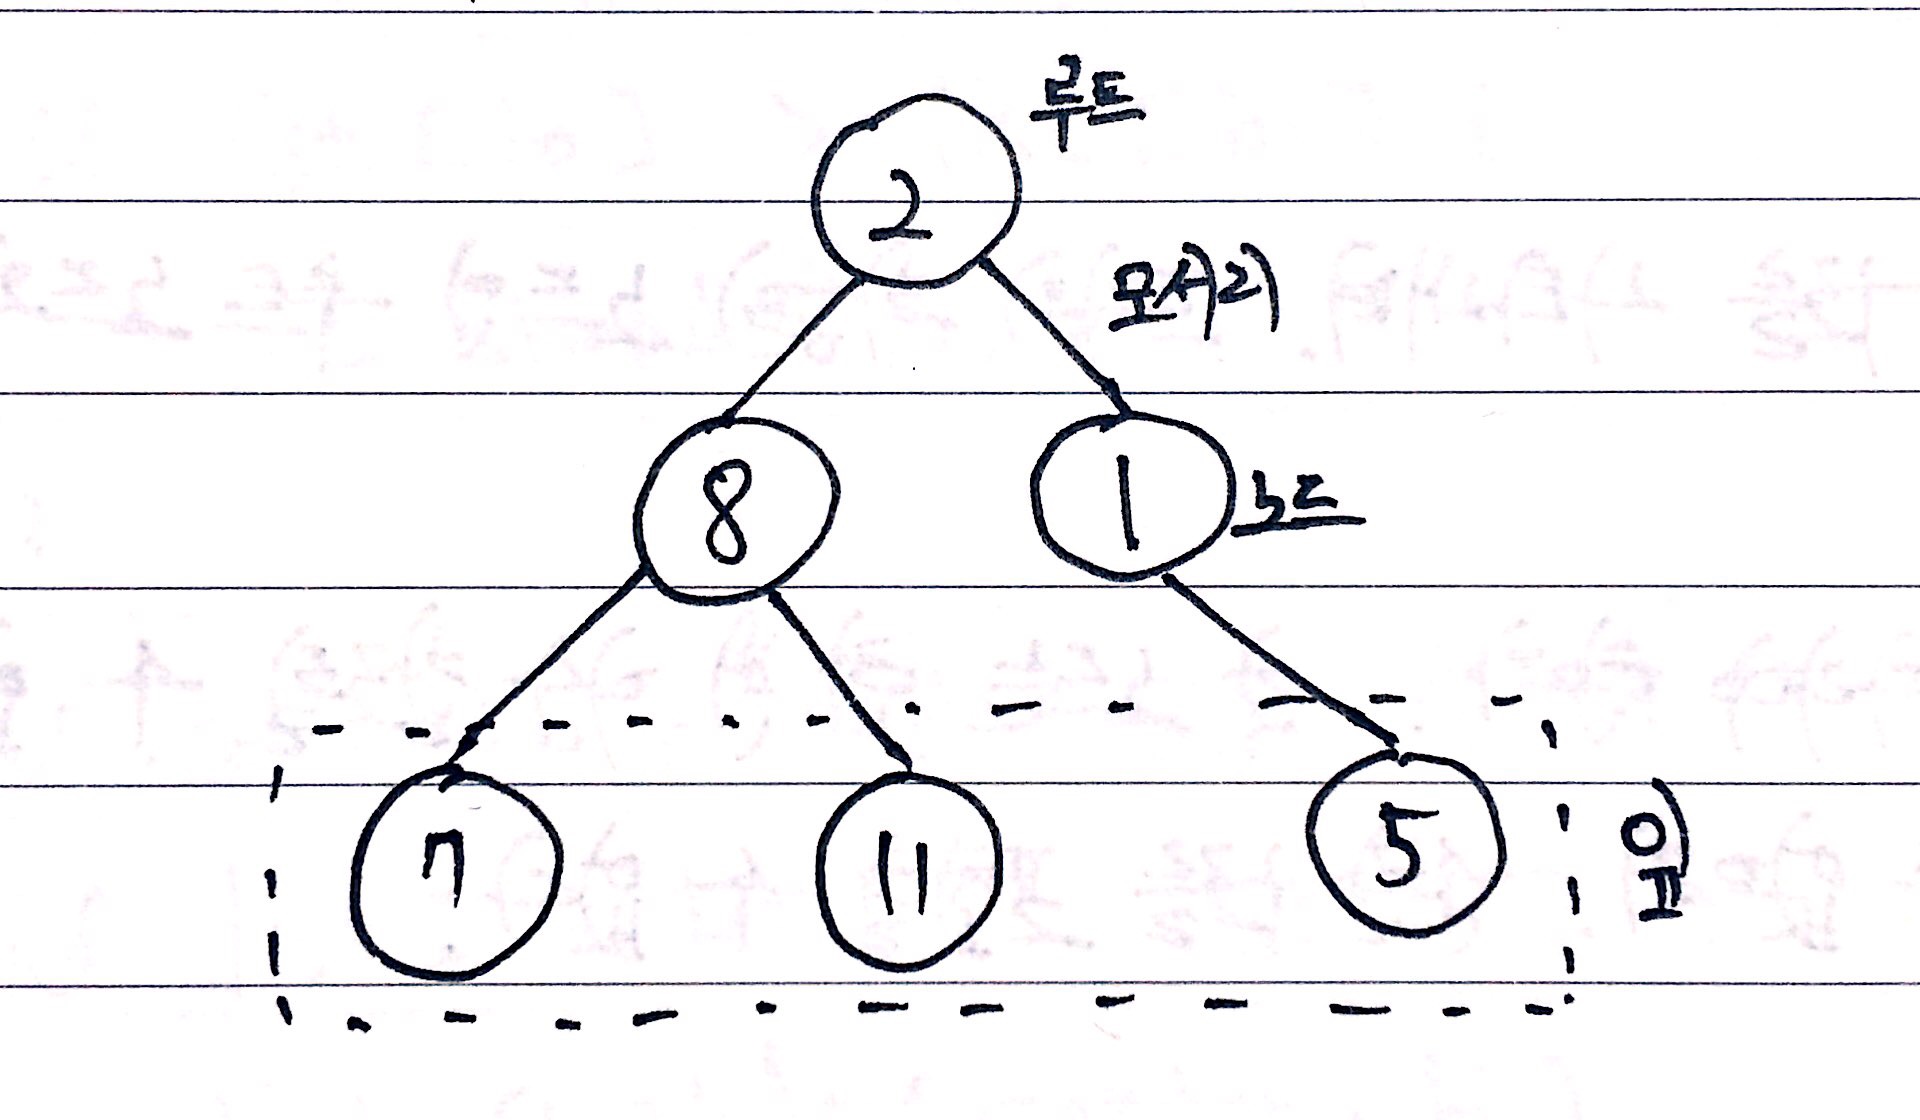 루트
2
모서리
8
1 노드
7 11 5
잎